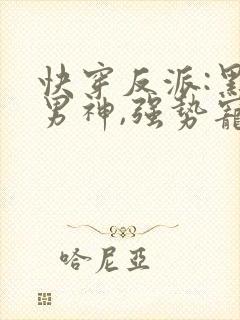 快穿反派:黑
男神,強势寵
哈尼亞